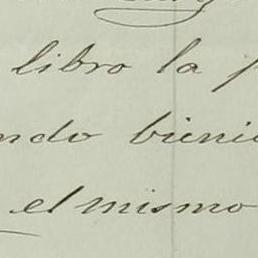 libro la p
ndo bieni
el mismo